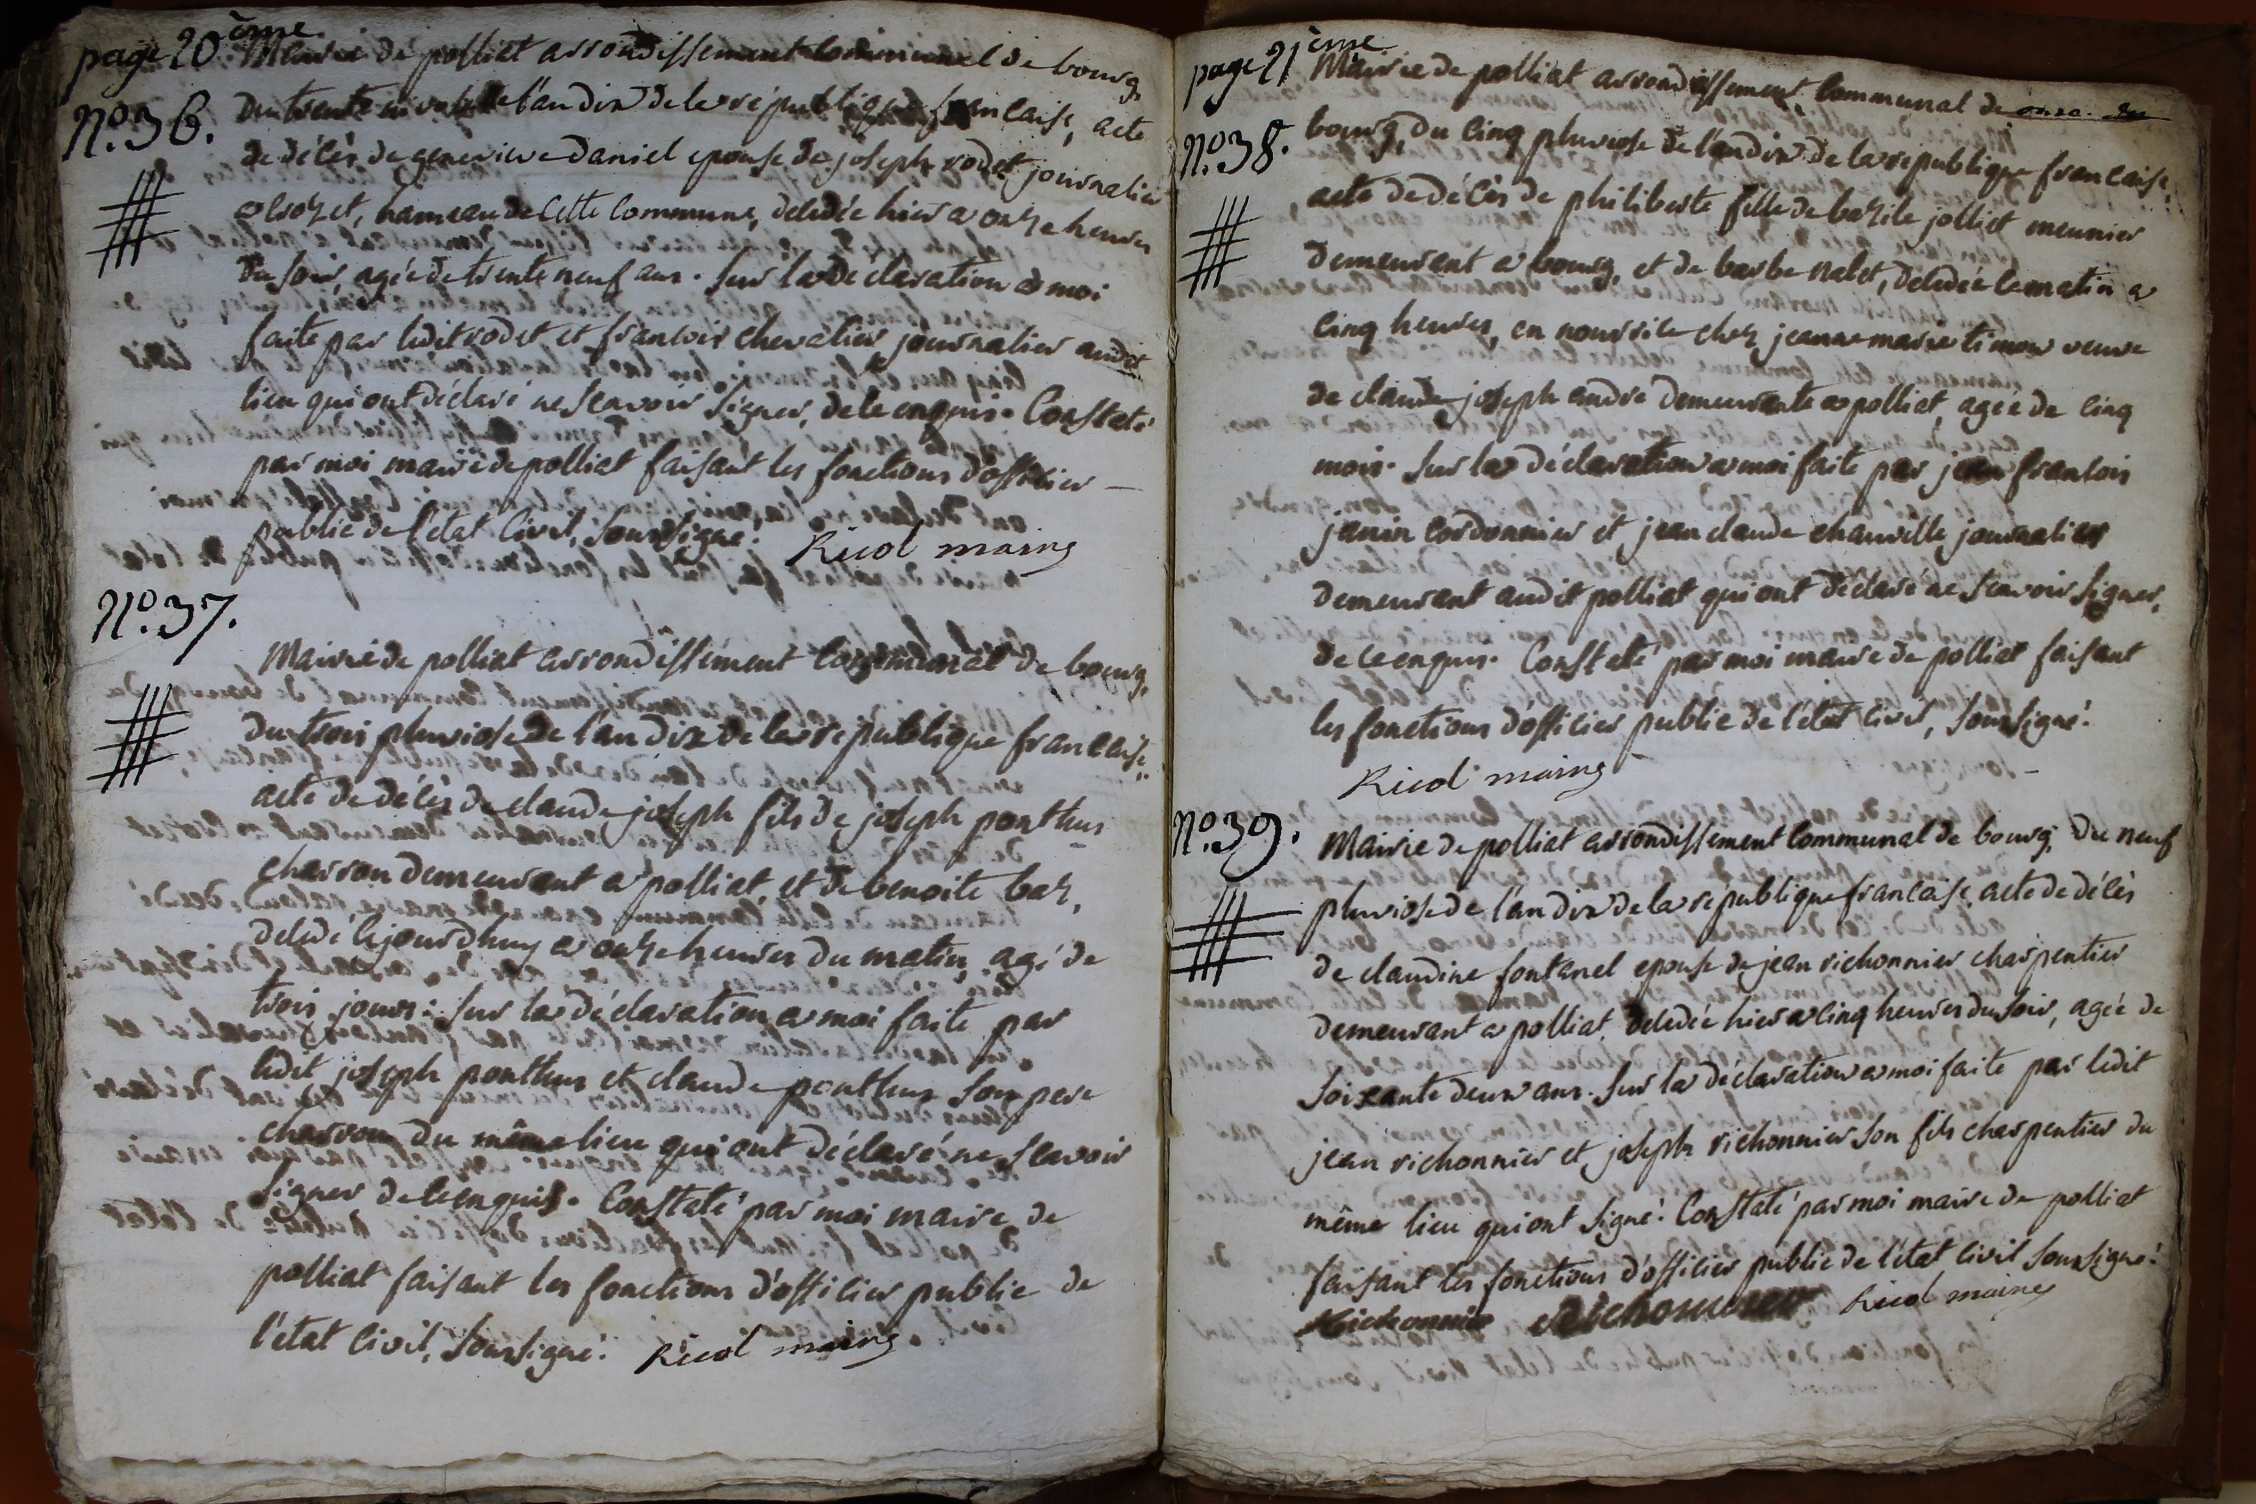 page 20 ème
Mairie de polliat arrondissement communal de bourg,
N.o 36.
du trente nivose de l'an dix de la république francaise, acte
de décès de genevieve daniel epouse de joseph rodet journalier
a crozet, hameau de cette commune, decedée hier a onze heures
du soir, agée de trente neuf ans. Sur la declaration a moi
faite par ledit rodet et francois chevalier journalier audit
lieu qui ont déclaré ne scavoir signer, de ce enquis. Constaté
par moi maire de polliat faisant les fonctions d'officier
public de l'etat civil, soussigné. Ricol maire
N.o 37.
Mairie de polliat arrondissement communal de bourg,
du trois pluviose de l'an dix de la république francaise,
acte de décès de claude joseph fils de joseph ponthus
charron demeurant a polliat, et de benoite baz,
decedé cejourdhuy a onze heures du matin, agé de
trois jours: Sur la déclaration a moi faite par
ledit joseph ponthus et claude ponthus son pere
charron du même lieu qui ont déclaré ne scavoir
signer de ce enquis. Constaté par moi maire de
polliat faisant les fonctions d'officier public de
l'état civil, soussigné. Ricol maire
page 21 ème
Mairie de polliat arrondissement communal de
N.o 38.
bourg, du cinq pluviose de l'an dix de la republique francaise,
acte de décès de philiberte fille de bazile jolliet meunier
demeurant a bourg, et de barbe nalet, decedée ce matin a
cinq heures, en nourrice chez jeanne marie timon veuve
de claude joseph andré demeurante a polliat, agée de cinq
mois. Sur la déclaration a moi faite par jean francois
janin cordonnier et jean claude chanuelle journalier
demeurant audit polliat qui ont déclaré ne scavoir signer,
de ce enquis. Constaté par moi maire de polliat faisant
les fonctions d'officier public de l'état civil, soussigné.
Ricol maire
N.o 39.
Mairie de polliat arrondissement communal de bourg, du neuf
pluviose de l'an dix de la republique francaise, acte de décès
de claudine fontanel epouse de jean richonnier charpentier
demeurant a polliat, decedée hier a cinq heures du soir, agée de
soixante deux ans. Sur la déclaration a moi faite par ledit
jean richonnier et joseph richonnier son fils charpentier du
même lieu qui ont signé. Constaté par moi maire de polliat
faisant les fonctions d'officier public de l'état civil soussigné.
Richonnier Richonnier Ricol maire